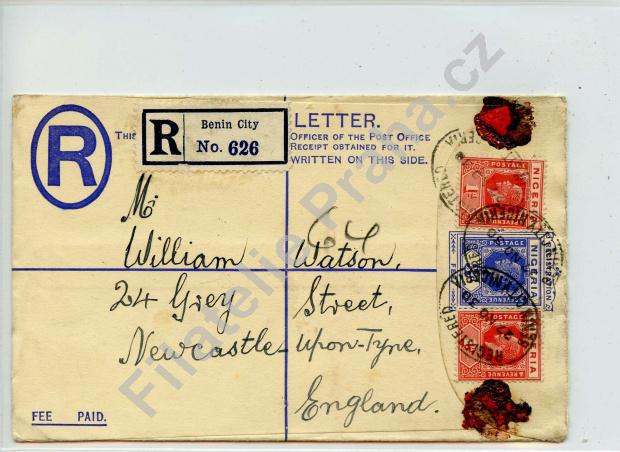 R
THIS
LETTER.
OFFICER OF THE POST OFFICE
RECEIPT OBTAINED FOR IT.
WRITTEN ON THIS SIDE.
R
Benin City
No. 626
64
Mr
William Watson,
24 Grey Street,
Newcastle-upon-Tyne,
England.
FEE PAID.
NIGERIA
POSTAGE
& REVENUE
NIGERIA
POSTAGE
NIGERIA
POSTAGE
& REVENUE
REGISTERED
Filatelie Praha.cz